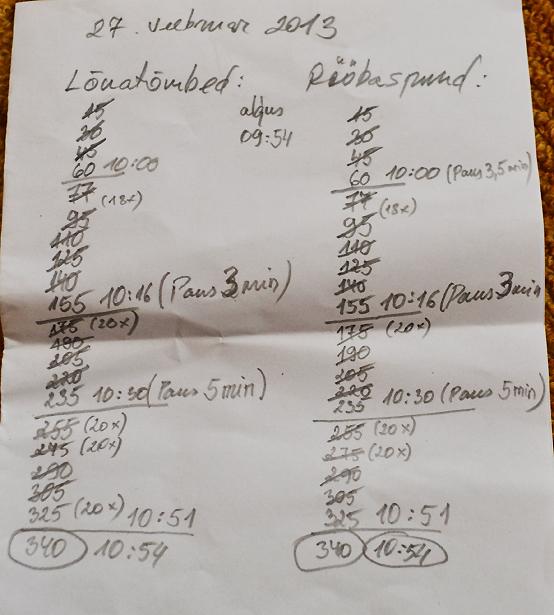 27. veebruar 2013
Lõuatõmbed:
algus
09:54
15
30
45
60 10:00
77 (18x)
95
110
125
140
155 10:16 (Paus 3 min)
175 (20x)
190
205
220
235 10:30 (Paus 5 min)
255 (20x)
275 (20x)
290
305
325 (20x) 10:51
340 10:54
Rööbaspuud:
15
30
45
60 10:00 (Paus 3,5 min)
77 (18x)
95
110
125
140
155 10:16 (Paus 3 min
175 (20x)
190
205
220
235 10:30 (Paus 5 min)
255 (20x)
275 (20x)
290
305
325 10:51
340 10:54